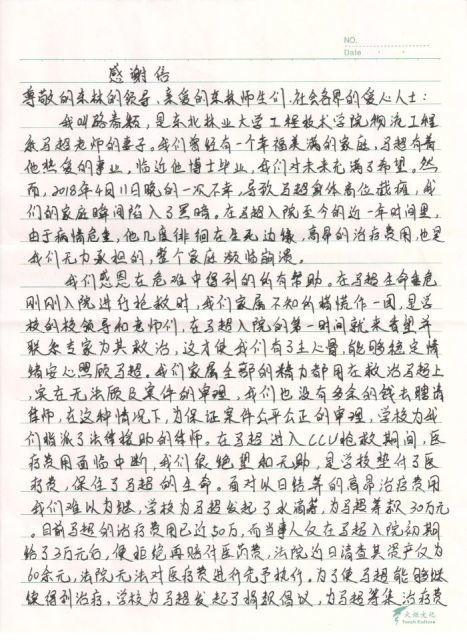 NO.
Date
感谢信
尊敬的东林的领导、亲爱的东林师生们、社会各界的爱心人士：
我叫路嘉颖，是东北林业大学工程技术学院物流工程
系马超老师的妻子。我们曾经有一个幸福美满的家庭，马超有着
他热爱的事业，临近他博士毕业，我们对未来充满了希望。然
而，2018年4月11日晚的一次不幸，导致马超身体高位截瘫，我
们的家庭瞬间陷入了黑暗。在马超入院至今的近一年时间里，
由于病情危重，他几度徘徊在生死边缘，高昂的治疗费用，也是
我们无力承担的，整个家庭濒临崩溃。
我们感恩在危难中得到的所有帮助。在马超生命垂危
刚刚入院进行抢救时，我们家属不知所措慌作一团，是学
校的校领导和老师们，在马超入院的第一时间就来看望并
联系专家为其救治，这才使我们有了主心骨，能够稳定情
绪安心照顾马超。我们家属全部的精力都用在救治马超上
，实在无法顾及案件的审理，我们也没有多余的钱去聘请
律师，在这种情况下，为保证案件公平公正的审理，学校为我
们指派了法律援助的律师。在马超进入CCU抢救期间，医
疗费用面临中断，我们很绝望和无助，是学校垫付了医
疗费，保住了马超的生命。面对以日结算的高昂治疗费用
我们难以为继，学校为马超发起了水滴筹，为马超筹款30万元
。目前马超的治疗费用已近50万，而当事人仅在马超入院初期
给了3万元后，便拒绝再赔付医药费，法院近日清查其资产仅为
60余元，法院无法对医疗费进行先予执行。为了使马超能够继
续得到治疗，学校为马超发起了捐款倡议，为马超筹集治疗费
火炬文化
Torch Culture